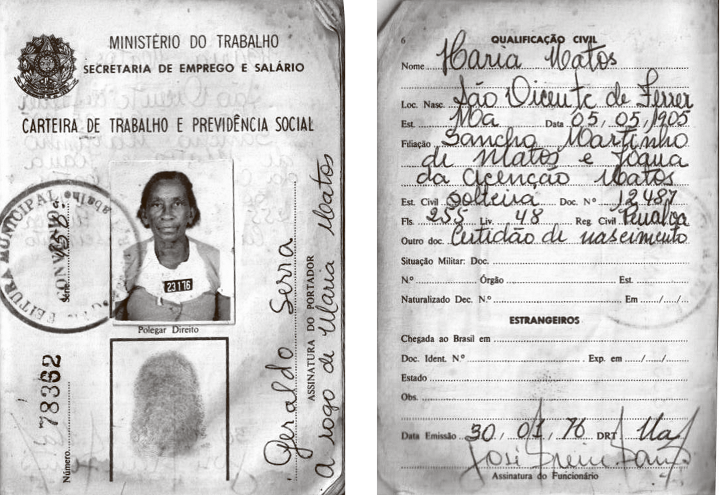 MINISTÉRIO DO TRABALHO
SECRETARIA DE EMPREGO E SALÁRIO
CARTEIRA DE TRABALHO E PREVIDÊNCIA SOCIAL
Série
23 1 76
Polegar Direito
Número 78362
Geraldo Serra
ASSINATURA DO PORTADOR
A rogo de Maria Matos
6
QUALIFICAÇÃO CIVIL
Nome Maria Matos
Loc. Nasc. São Vicente de Ferrer
Est. Ma Data 05/05/1905
Filiação Sancho Martinho
de Matos e
da Acenção Matos
Est. Civil Solteira Doc. Nº 12487
Fls. 255 Liv. 48 Reg. Civil
Outro doc. Certidão de nascimento
Situação Militar: Doc.
N.º Órgão Est.
Naturalizado Dec. N.º Em / /
ESTRANGEIROS
Chegada ao Brasil em
Doc. Ident. N.º Exp. em / /
Estado
Obs.
Data Emissão 30/01/76 DRT Ma
José
Assinatura do Funcionário